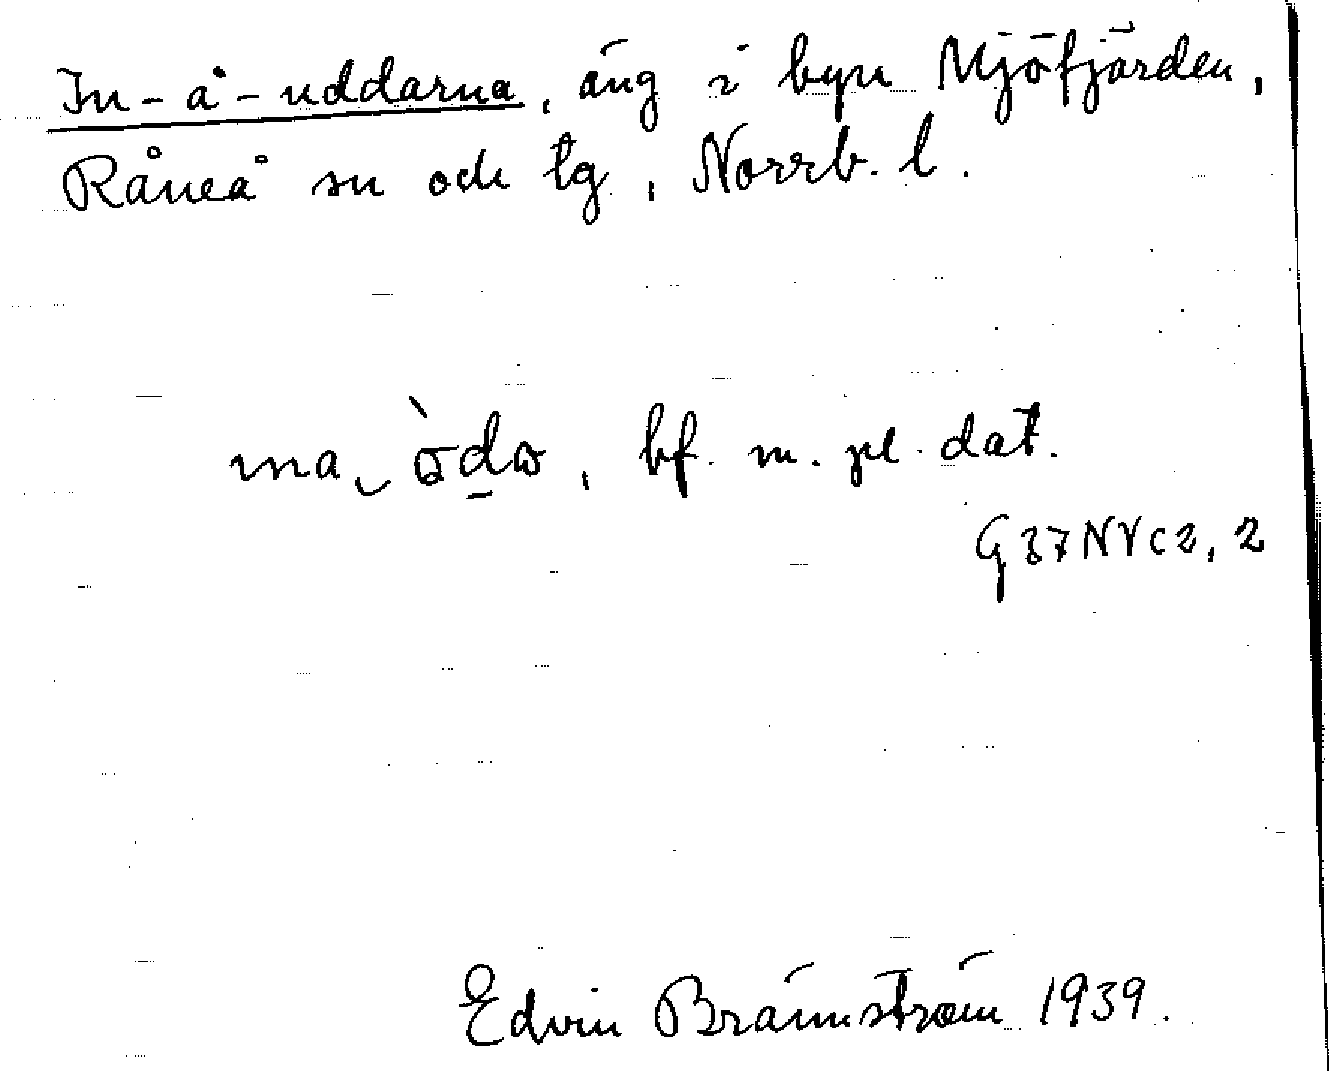 In-å-uddarna, äng i byn Mjöfjärden,
Råneå sn och tg, Norrb. l.
bf. m. pl. dat.
G37NVc2, 2
Edvin Brännström 1939.